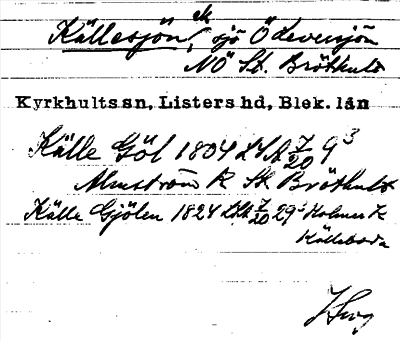 Källesjön, sjö Ö Levensjön
NÖ St. Bröthult
Kyrkhults sn, Listers hd, Blek. län
Källe Göl 1804 LSA 7/20 9³
Almström K St Bröthult
Källe Gjölen 1824 LSA 7/20 29² Holmer K
Källeboda